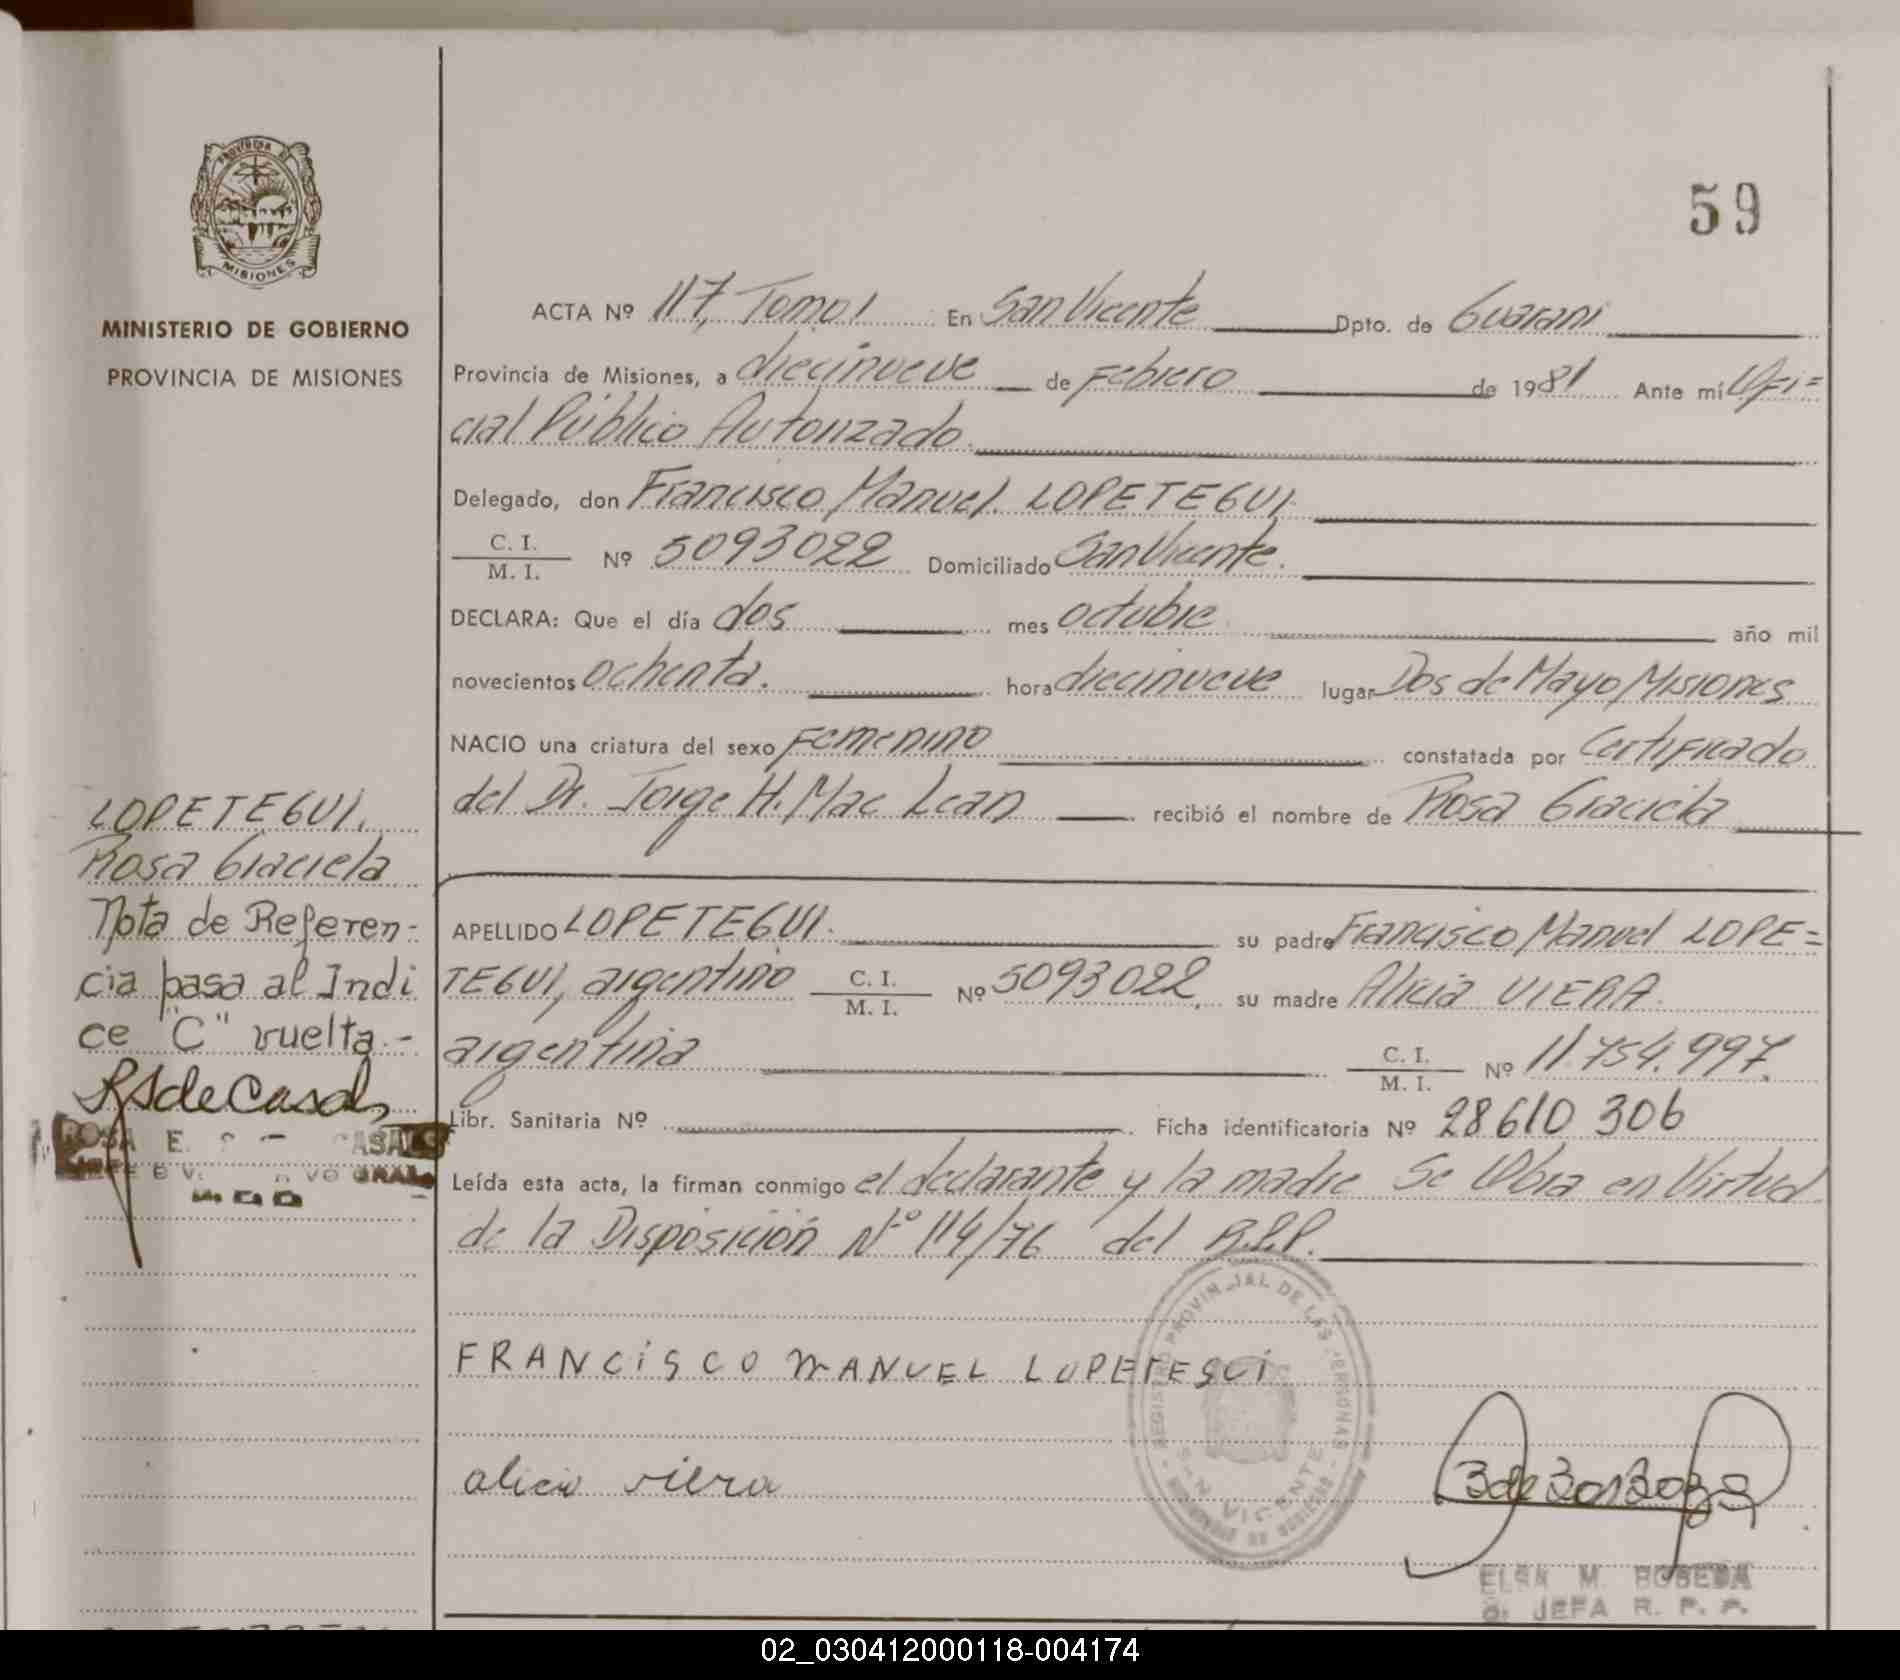 PROVINCIA DE
MISIONES
MINISTERIO DE GOBIERNO
PROVINCIA DE MISIONES
59
ACTA Nº 117, Tomo I En San Vicente Dpto. de Guaraní
Provincia de Misiones, a diecinueve de Febrero de 1981 Ante mí Ofi=
cial Público Autorizado.
Delegado, don Francisco Manuel LOPETEGUI
C. I.
M. I.
Nº 5093022 Domiciliado San Vicente.
DECLARA: Que el día dos mes octubre año mil
novecientos ochenta. hora diecinueve lugar Dos de Mayo Misiones
NACIO una criatura del sexo Femenino constatada por Certificado
del Dr. Jorge H. Mac Lean recibió el nombre de Rosa Graciela
APELLIDO LOPETEGUI. su padre Francisco Manuel LOPE=
TEGUI, argentino C. I. M. I. Nº 5093022, su madre Alicia VIERA.
argentina C. I. M. I. Nº 11.754.997.
Libr. Sanitaria Nº Ficha identificatoria Nº 28610 306
Leída esta acta, la firman conmigo el declarante y la madre Se labra en Virtud
de la Disposición Nº 114/76 del R.P.P.
FRANCISCO MANUEL LOPETEGUI
alicia viera
LOPETEGUI.
Rosa Graciela
Nota de Referen-
cia pasa al Indi
ce "C" vuelta.-
RS de Casals
ROSA E. CASALS
REGISTRO PROVINCIAL DE LAS PERSONAS
SAN VICENTE
ELSA M. BOBEDA
JEFA R. P. P.
02_030412000118-004174